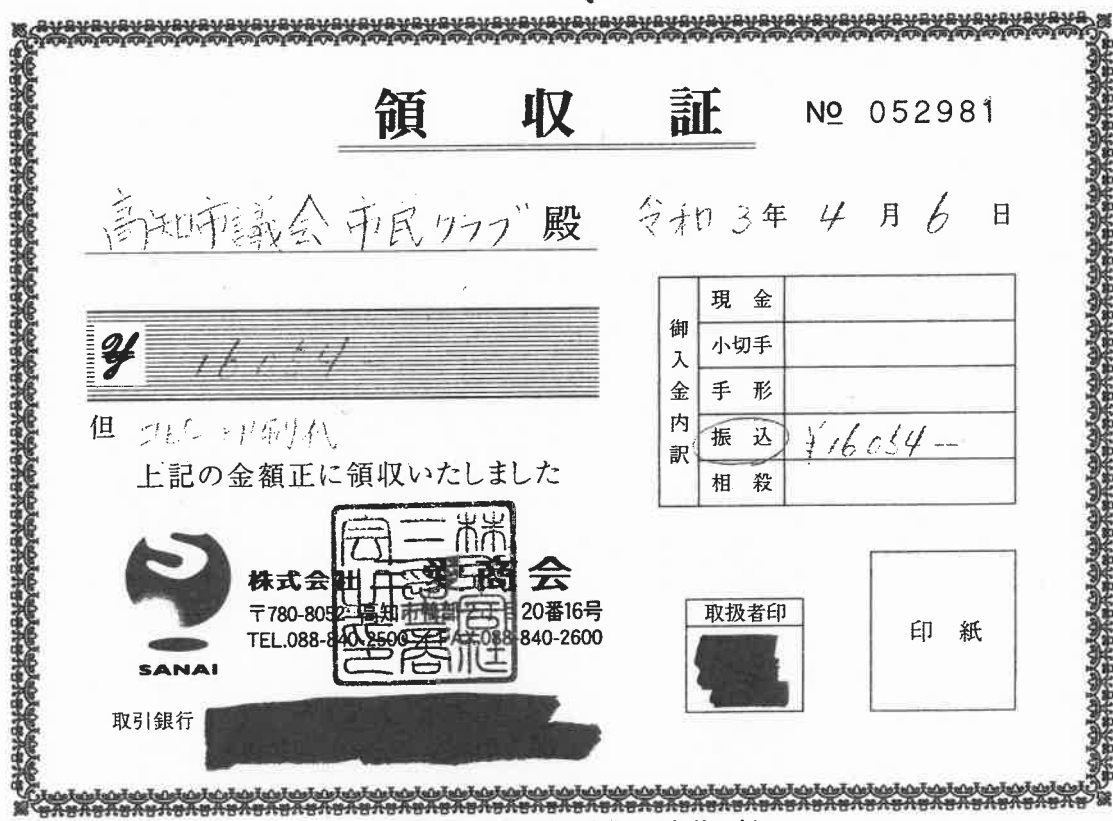 領収証 № 052981
高知市議会 市民クラブ 殿 令和 3年 4月 6日
¥ 16054
但 コピー 印刷代
上記の金額正に領収いたしました
御入金内訳
現金
小切手
手形
振込 ¥16054 —
相殺
SANAI
株式会 商会
〒780-8052 高知市 20番16号
TEL.088-840-2500 FAX.088-840-2600
取扱者印
印紙
取引銀行